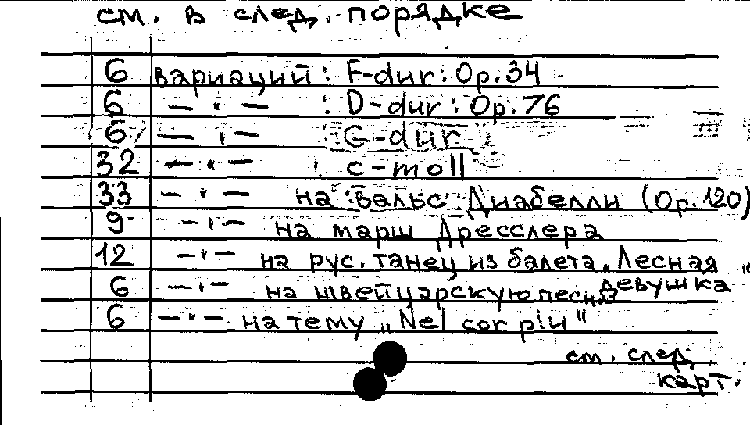 см. в след. порядке
6 вариаций: F-dur: Op. 34
6 — " — : D-dur: Op. 76
6 — " — G-dur
32 — " — c-moll
33 — " — на вальс Диабелли (Op. 120)
9 — " — на марш Дресслера
12 — " — на рус. танец из балета „Лесная девушка"
6 — " — на швейцарскую песню
6 — " — на тему „Nel cor più"
см. след.
карт.